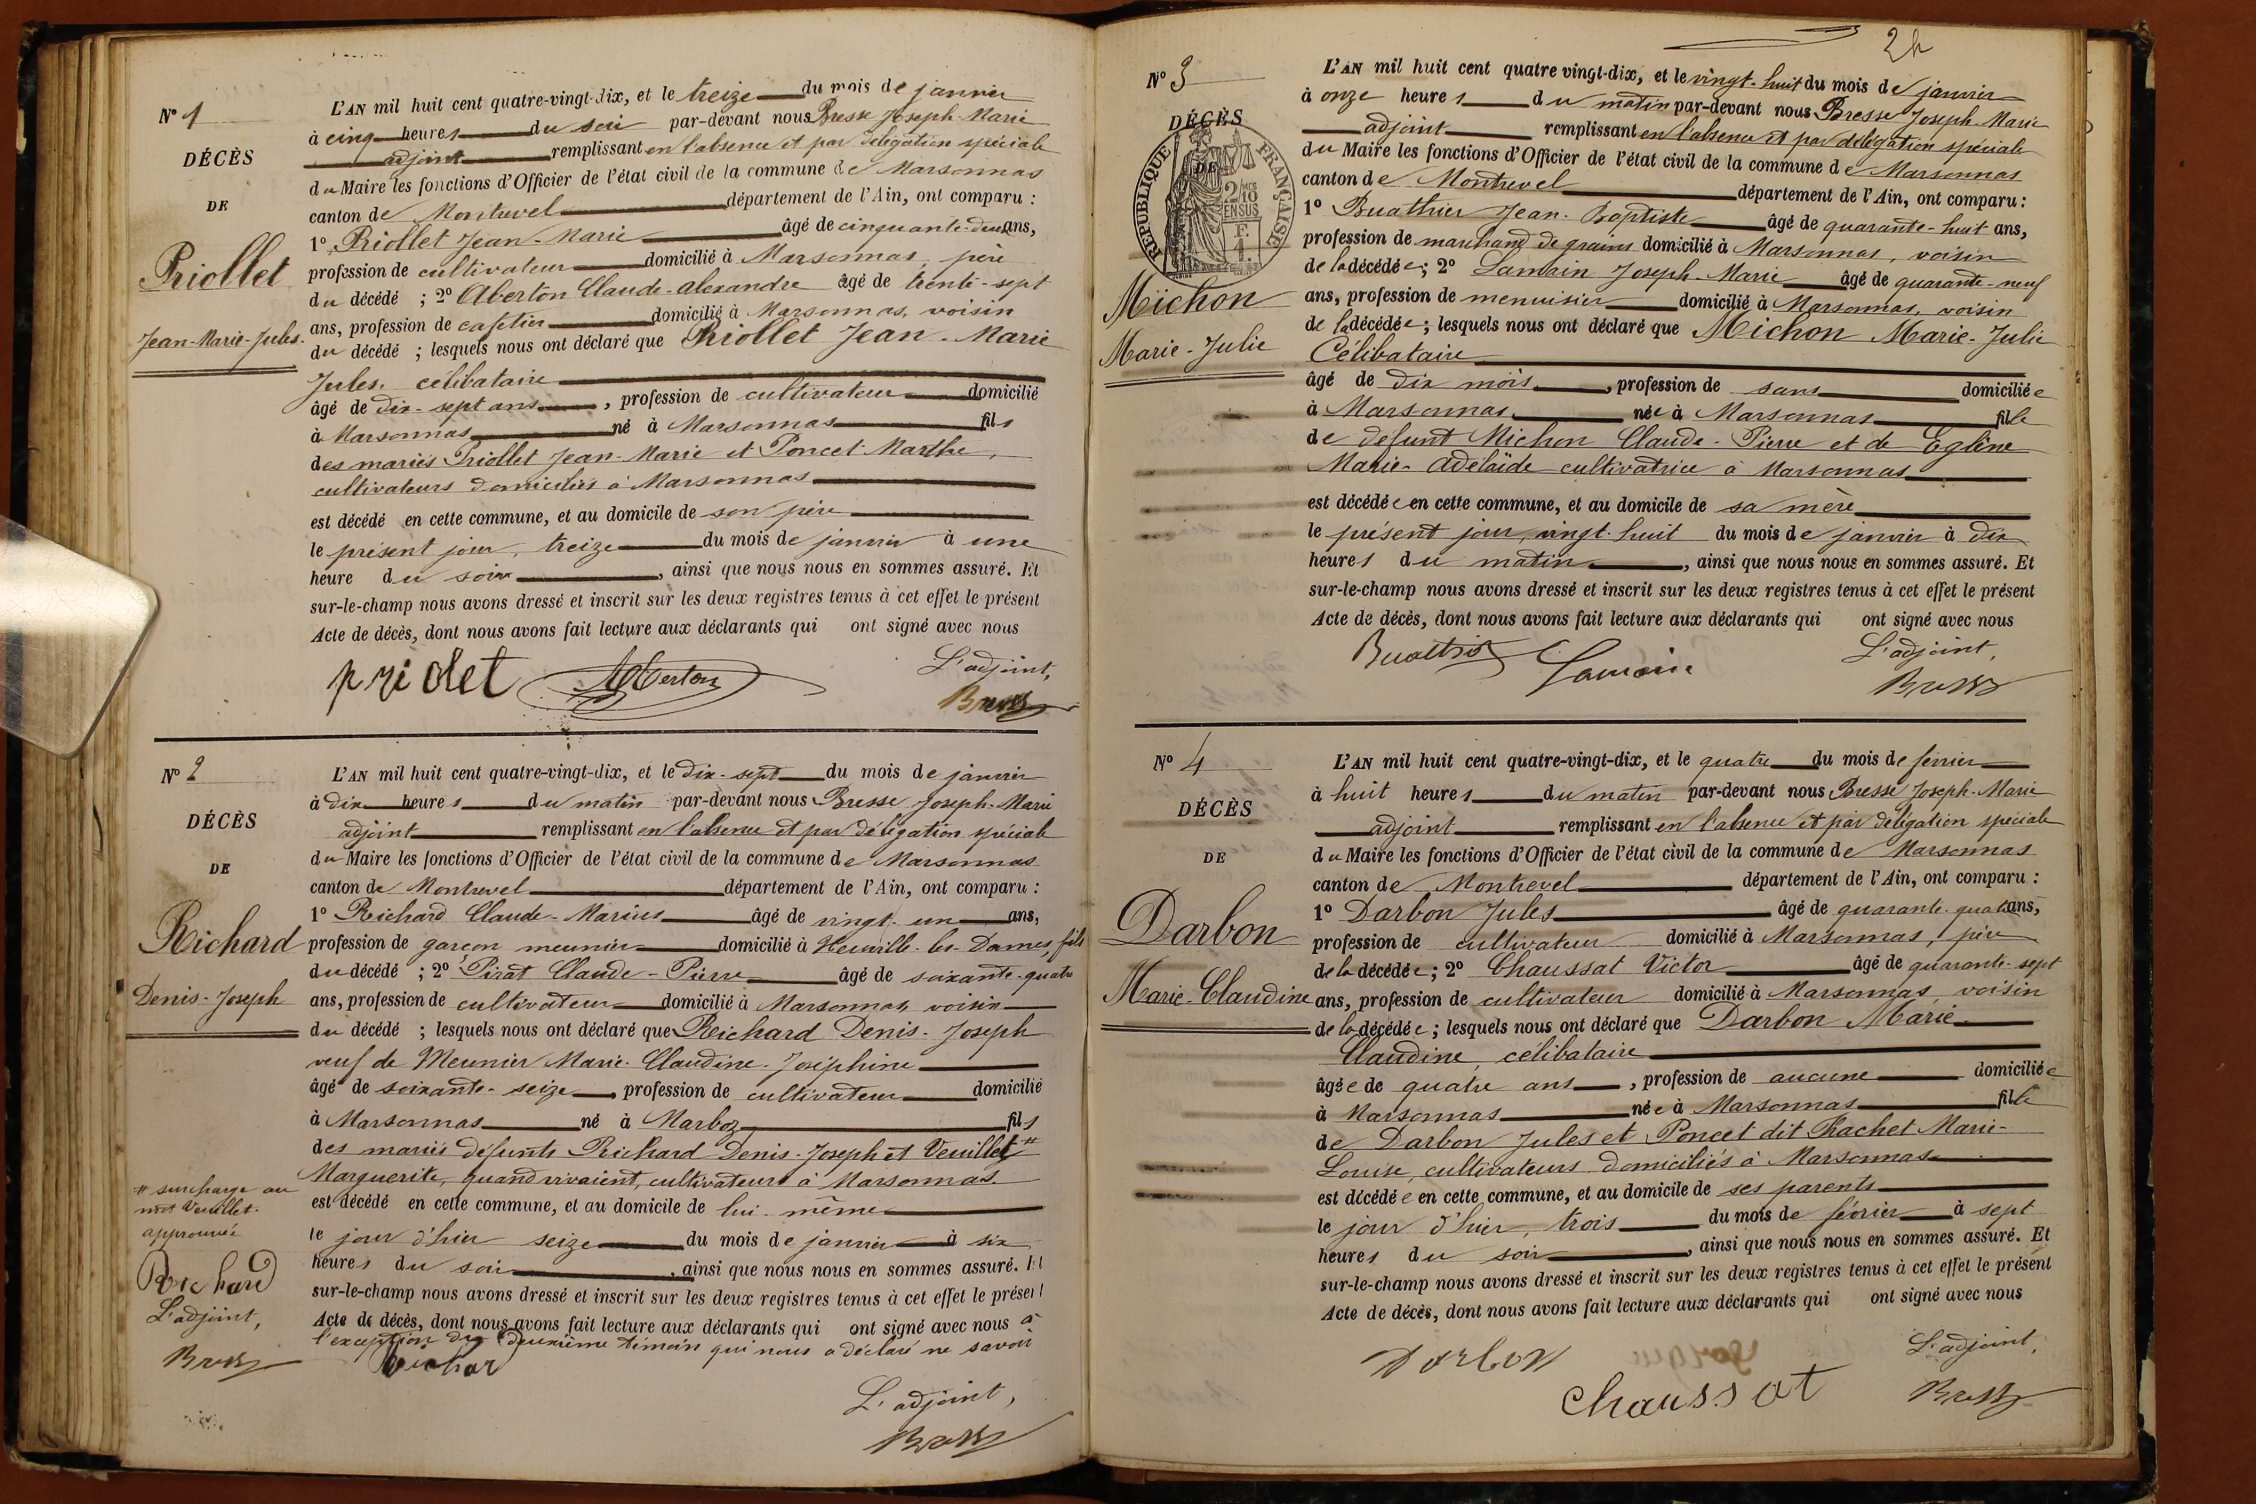 Nº 1
DÉCÈS
DE
Priollet
Jean-Marie-Jules.
L'AN mil huit cent quatre-vingt-dix, et le treize du mois de janvier
à cinq heures du soir par-devant nous Bresse Joseph-Marie
adjoint remplissant en l'absence et par délégation spéciale
du Maire les fonctions d'Officier de l'état civil de la commune de Marsonnas
canton de Montrevel département de l'Ain, ont comparu :
1º Priollet Jean-Marie âgé de cinquante-deux ans,
profession de cultivateur domicilié à Marsonnas, père
du décédé ; 2º Aberton Claude-Alexandre âgé de trente-sept
ans, profession de cafetier domicilié à Marsonnas, voisin
du décédé ; lesquels nous ont déclaré que Priollet Jean-Marie
Jules, célibataire
âgé de dix-sept ans, profession de cultivateur domicilié
à Marsonnas né à Marsonnas fils
des mariés Priollet Jean-Marie et Poncet Marthe,
cultivateurs domiciliés à Marsonnas
est décédé en cette commune, et au domicile de son père
le présent jour, treize du mois de janvier à une
heure du soir, ainsi que nous nous en sommes assuré. Et
sur-le-champ nous avons dressé et inscrit sur les deux registres tenus à cet effet le présent
Acte de décès, dont nous avons fait lecture aux déclarants qui ont signé avec nous
priolet Aberton L'adjoint,
Bresse
Nº 2
DÉCÈS
DE
Richard
Denis-Joseph
L'AN mil huit cent quatre-vingt-dix, et le dix-sept du mois de janvier
à dix heures du matin par-devant nous Bresse Joseph-Marie
adjoint remplissant en l'absence et par délégation spéciale
du Maire les fonctions d'Officier de l'état civil de la commune de Marsonnas
canton de Montrevel département de l'Ain, ont comparu :
1º Richard Claude-Marius âgé de vingt-un ans,
profession de garçon meunier domicilié à Neuville-les-Dames, fils
du décédé ; 2º Pirat Claude-Pierre âgé de soixante-quatre
ans, profession de cultivateur domicilié à Marsonnas, voisin
du décédé ; lesquels nous ont déclaré que Richard Denis-Joseph
veuf de Meunier Marie-Claudine-Joséphine
âgé de soixante-seize, profession de cultivateur domicilié
à Marsonnas né à Marboz fils
des mariés défunts Richard Denis-Joseph et Veuillet #
Marguerite, quand vivaient, cultivateurs à Marsonnas.
est décédé en cette commune, et au domicile de lui-même
le jour d'hier seize du mois de janvier à six
heures du soir, ainsi que nous nous en sommes assuré. Et
sur-le-champ nous avons dressé et inscrit sur les deux registres tenus à cet effet le présent
Acte de décès, dont nous avons fait lecture aux déclarants qui ont signé avec nous à
l'exception du deuxième témoin qui nous a déclaré ne savoir
Richar
L'adjoint,
Bresse
# surcharge au
mot Veuillet.
approuvée
Richard
L'adjoint,
Bresse
24
Nº 3
DÉCÈS
DE
RÉPUBLIQUE FRANÇAISE
2/10 EN SUS
Michon
Marie-Julie
L'AN mil huit cent quatre vingt-dix, et le vingt-huit du mois de janvier
à onze heures du matin par-devant nous Bresse Joseph-Marie
adjoint remplissant en l'absence et par délégation spéciale
du Maire les fonctions d'Officier de l'état civil de la commune de Marsonnas
canton de Montrevel département de l'Ain, ont comparu :
1º Buathier Jean-Baptiste âgé de quarante-huit ans,
profession de marchand de grains domicilié à Marsonnas, voisin
de la décédée ; 2º Lamain Joseph-Marie âgé de quarante-neuf
ans, profession de menuisier domicilié à Marsonnas, voisin
de la décédée ; lesquels nous ont déclaré que Michon Marie-Julie
Célibataire
âgé de dix mois, profession de sans domiciliée
à Marsonnas née à Marsonnas fille
de défunt Michon Claude-Pierre et de Egline
Marie-Adélaïde cultivatrice à Marsonnas
est décédée en cette commune, et au domicile de sa mère
le présent jour, vingt-huit du mois de janvier à dix
heures du matin, ainsi que nous nous en sommes assuré. Et
sur-le-champ nous avons dressé et inscrit sur les deux registres tenus à cet effet le présent
Acte de décès, dont nous avons fait lecture aux déclarants qui ont signé avec nous
Lamain L'adjoint,
Bresse
Nº 4
DÉCÈS
DE
Darbon
Marie-Claudine
L'AN mil huit cent quatre-vingt-dix, et le quatre du mois de février
à huit heures du matin par-devant nous Bresse Joseph-Marie
adjoint remplissant en l'absence et par délégation spéciale
du Maire les fonctions d'Officier de l'état civil de la commune de Marsonnas
canton de Montrevel département de l'Ain, ont comparu :
1º Darbon Jules âgé de quarante-quatre ans,
profession de cultivateur domicilié à Marsonnas, père
de la décédée ; 2º Chaussat Victor âgé de quarante-sept
ans, profession de cultivateur domicilié à Marsonnas, voisin
de la décédée ; lesquels nous ont déclaré que Darbon Marie
Claudine, célibataire
âgée de quatre ans, profession de aucune domiciliée
à Marsonnas née à Marsonnas fille
de Darbon Jules et Poncet dit Rachet Marie-
Louise, cultivateurs domiciliés à Marsonnas
est décédée en cette commune, et au domicile de ses parents
le jour d'hier, trois du mois de février à sept
heures du soir, ainsi que nous nous en sommes assuré. Et
sur-le-champ nous avons dressé et inscrit sur les deux registres tenus à cet effet le présent
Acte de décès, dont nous avons fait lecture aux déclarants qui ont signé avec nous
Darbon L'adjoint,
Chaussat Bresse